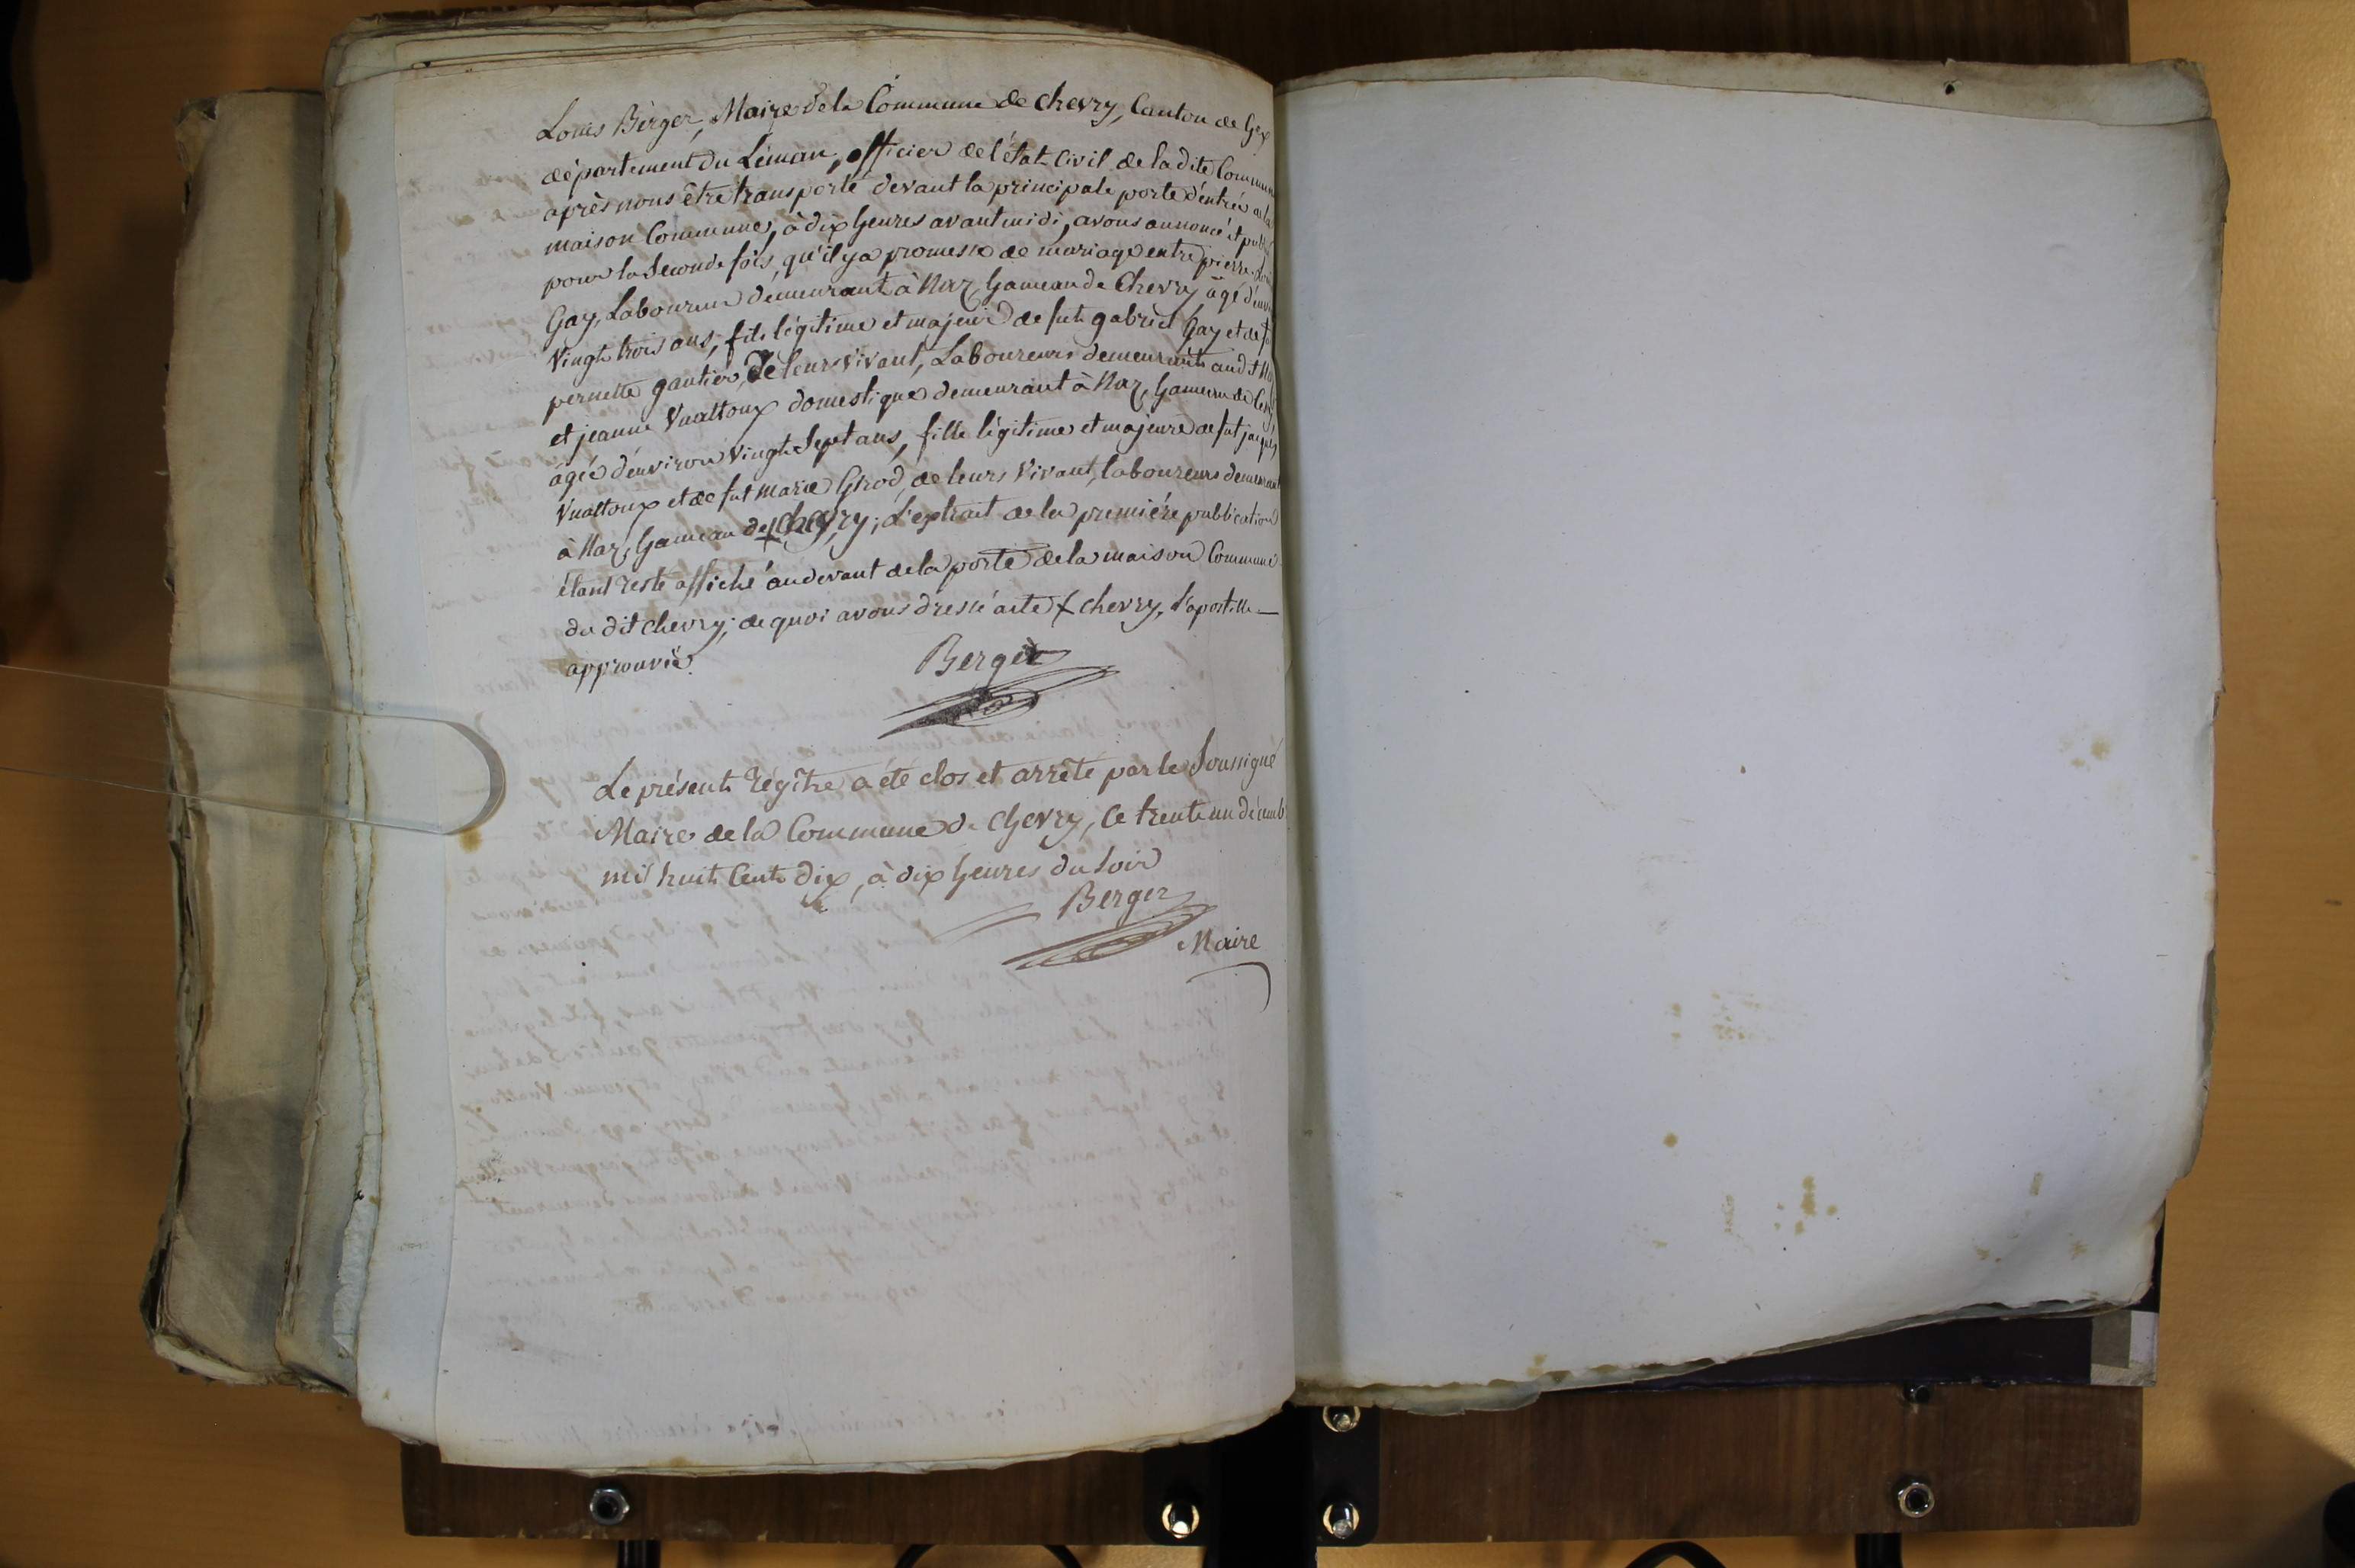 Louis Berger, Maire de la Commune de Chevry, Canton de Gex
département du Léman, officier de l'état Civil de la dite Commune
après nous être transporté devant la principale porte d'entrée de la
maison Commune, à dix heures avant midi, avons annoncé et publié
pour la seconde fois, qu'il y a promesse de mariage entre pierre
Gay, Laboureur demeurant à Naz, hameau de Chevry âgé d'environ
vingt trois ans, fils légitime et majeur de fut gabriel Gay et de
pernette gautier, de leurs vivant, Laboureurs demeurants audit Naz
et jeanne Vualtoux domestique demeurant à Naz, hameau de
âgée d'environ vingt Sept ans, fille légitime et majeure de fut jacques
Vualtoux et de fut marie Grod, de leurs vivant, laboureurs demeurant
à Naz, hameau de ; L'extrait de la première publication
étant resté affiché au devant de la porte de la maison Commune
du dit chevry; de quoi avons dressé acte + chevry, l'apostille
approuvée.
Berger
Le présent régître a été clos et arrêté par le Soussigné
Maire de la Commune de Chevry, ce trente un décemb
mil huit Cent dix, à dix heures du soir
Berger
Maire